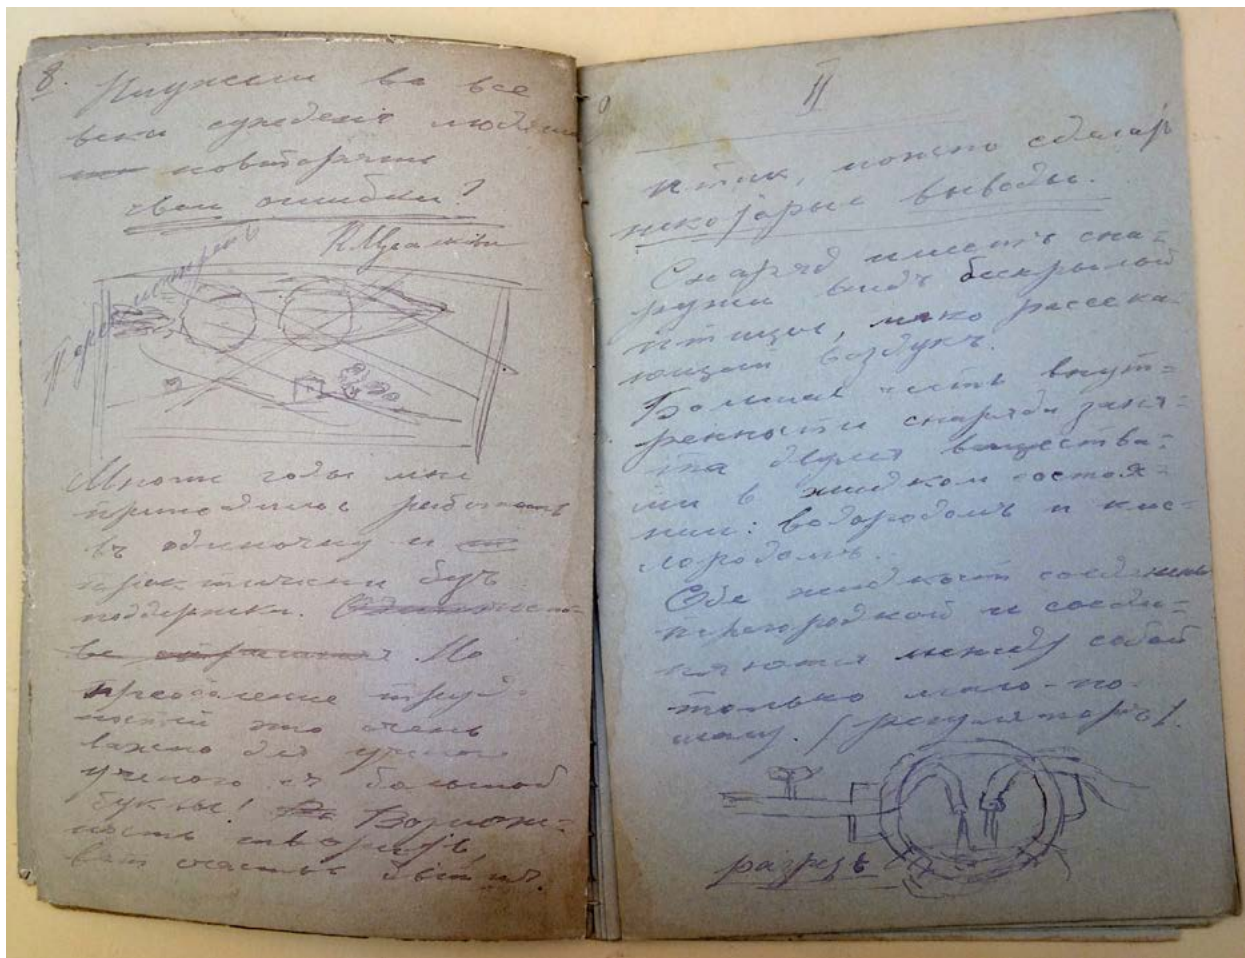 8.
Неужели во все
века суждено людям
повторять
свои ошибки?
К. Циолковский
Многие годы мне
приходилось работать
въ одиночку и
практически безъ
поддержки.
Но
преодоление труд-
ностей это очень
важно для
ученого съ большой
буквы! Возмож-
ность творить,
вот счастье
II
Итак, можно сделать
некоторые выводы.
Снаряд имеетъ сна=
ружи видъ бескрылой
птицы, легко рассека-
ющей воздухъ.
Большая часть внут=
ренности снаряда заня=
та двумя вещества=
ми в жидком состоя=
нии: водородомъ и кис=
лородомъ.
Обе жидкости
перегородкой и соеди=
няются между собой
только мало-по-
малу. (регуляторъ).
разрезъ